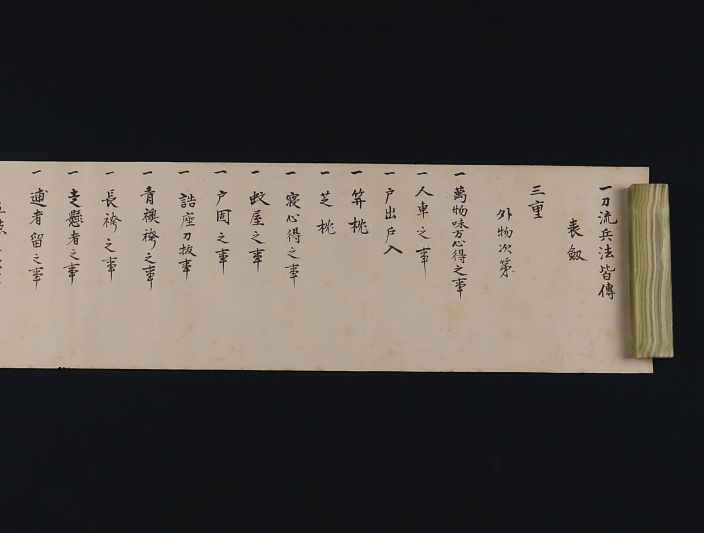 一刀流兵法皆傳
表劔
三重
外物次第
一 萬物味方心得之事
一 人車之事
一 戸出戸入
一 芝枕
一 寝心得之事
一 蚊屋之事
一 戸固之事
一 詰座刀抜事
一 青襖袴之事
一 長袴之事
一 走懸者之事
一 逋者留之事